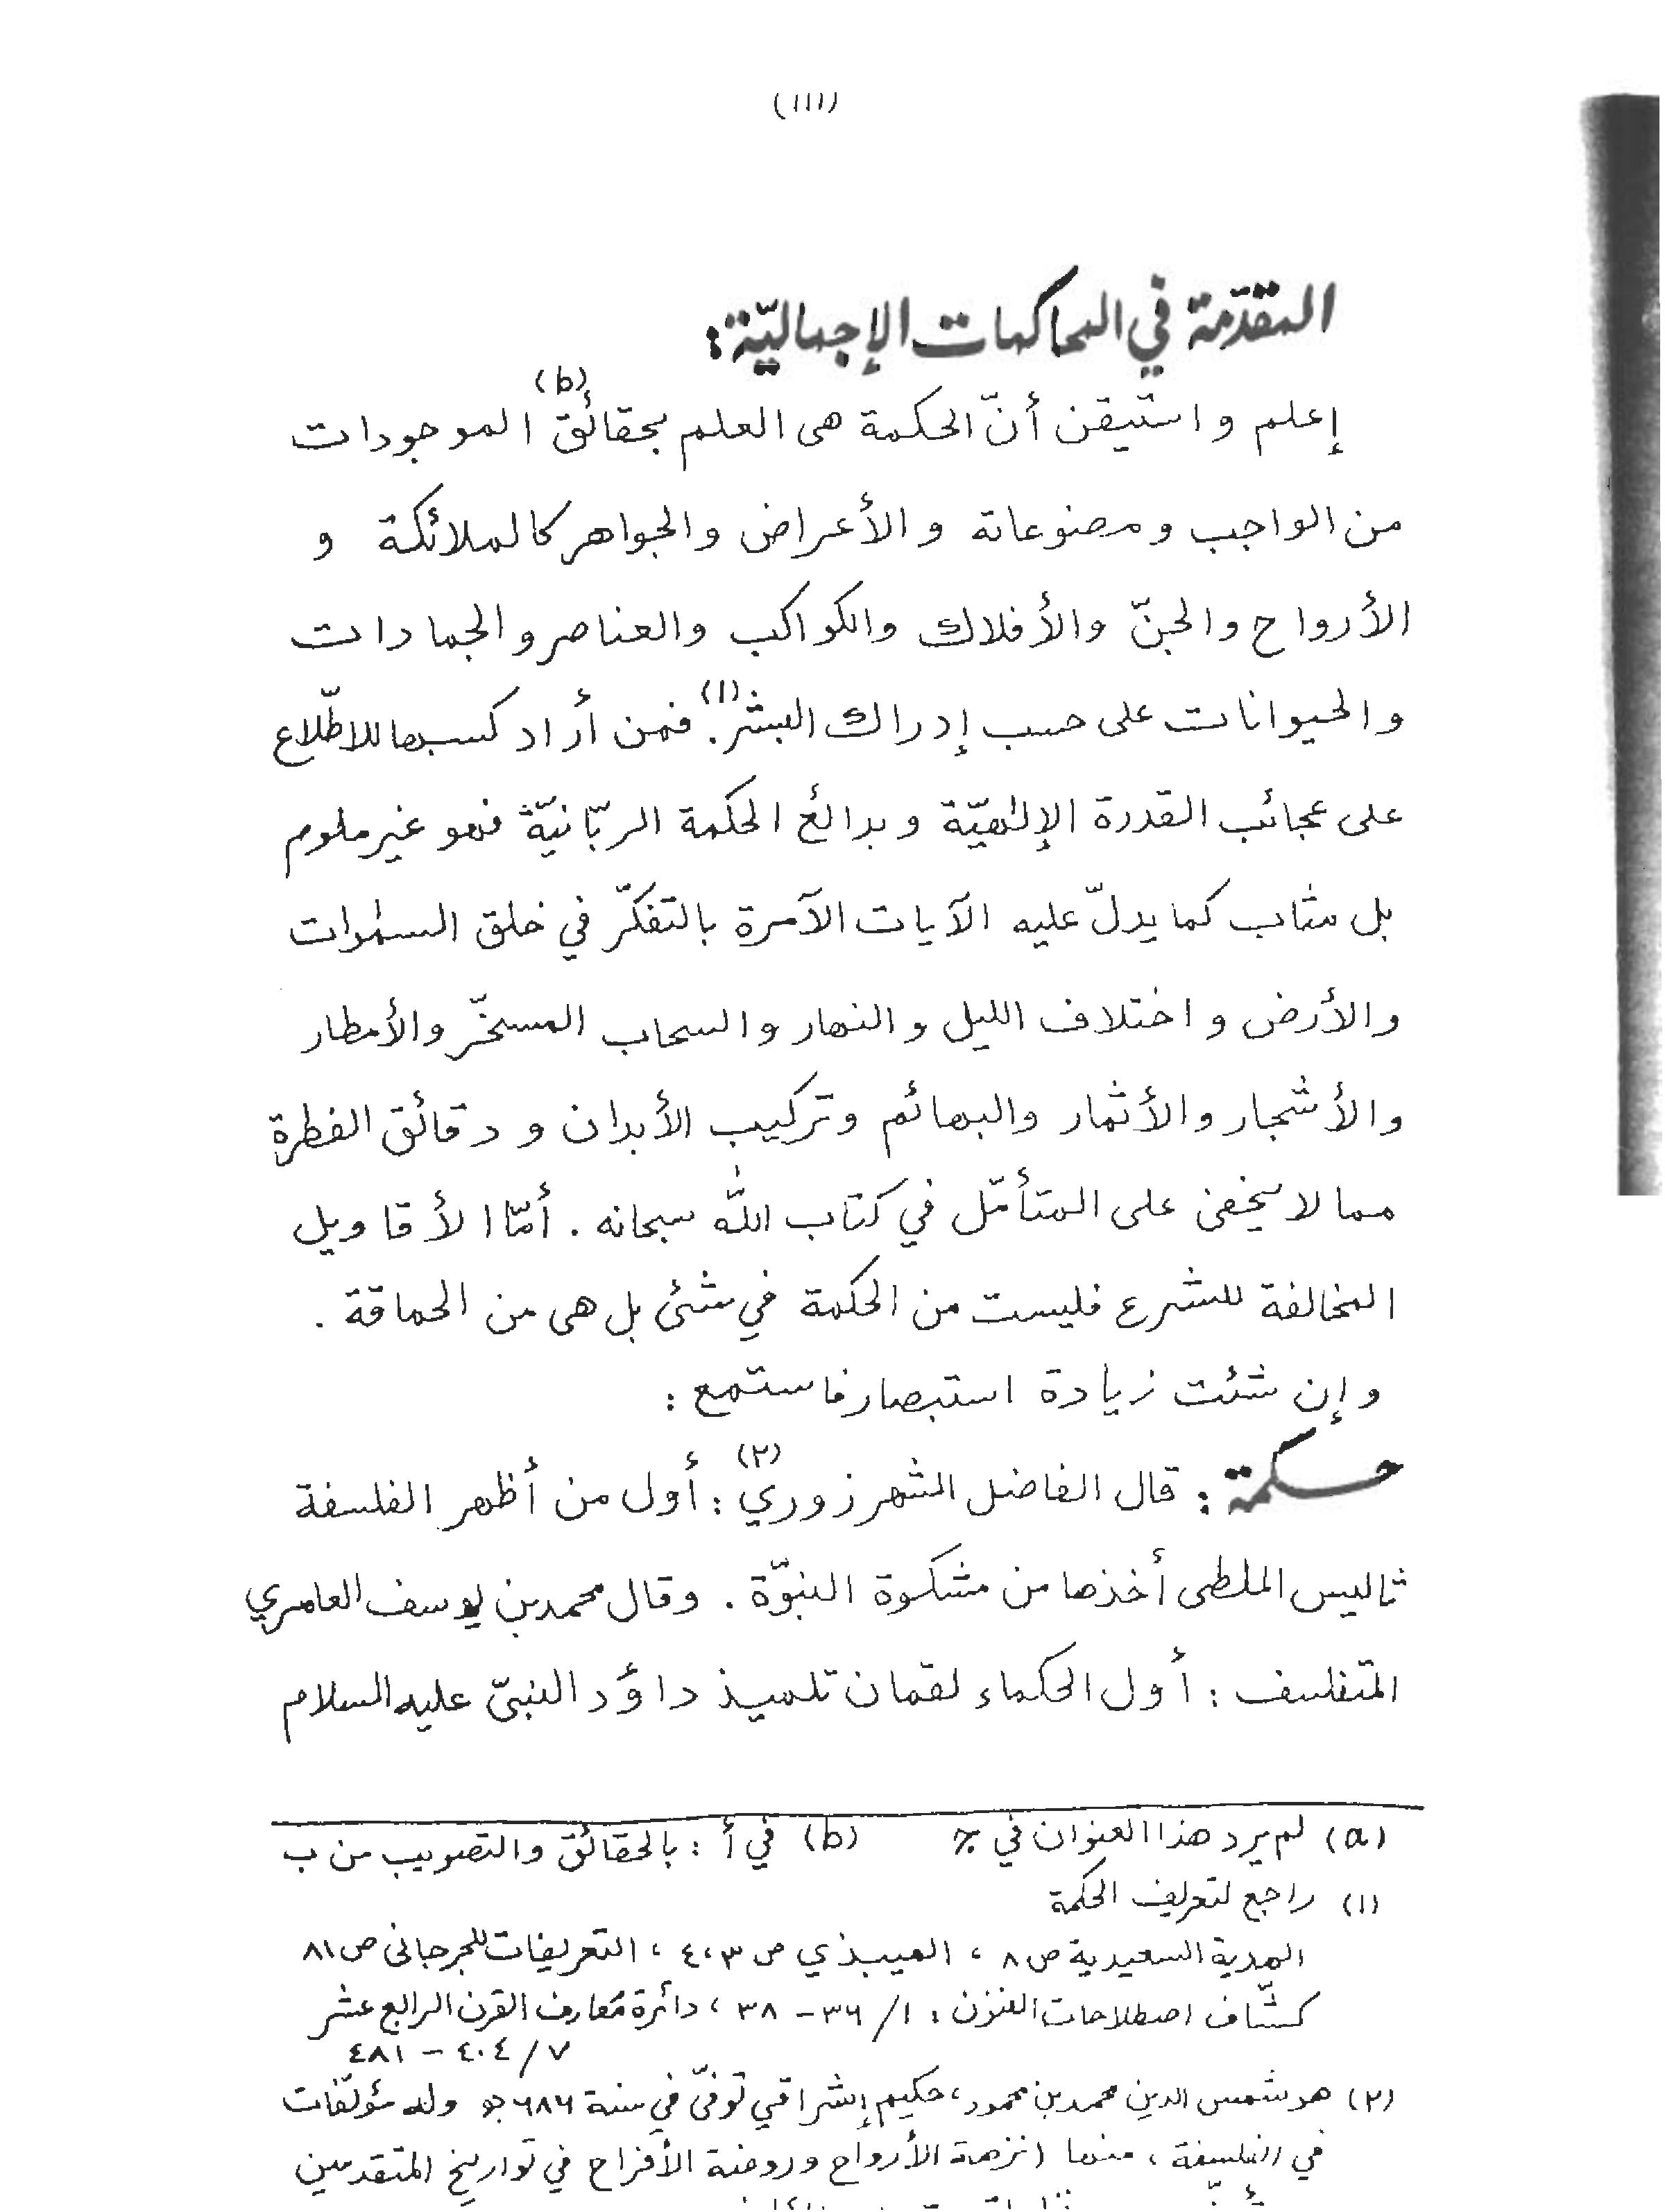 (١١١)
المقدّمة في المحاكمات الإجماليّة:
إعلم و استيقن أنّ الحكمة هى العلم بحقائق(b) الموجودات
من الواجب و مصنوعاته و الأعراض والجواهر كالملائكة و
الأرواح والجنّ والأفلاك والكواكب والعناصر و الجمادات
و الحيوانات على حسب إدراك البشر(١). فمن أراد كسبها للاطّلاع
على عجائب القدرة الإلٰهيّة و بدائع الحكمة الربّانيّة فهو غير ملوم
بل مثاب كما يدلّ عليه الآيات الآمرة بالتفكّر في خلق السمٰوات
والأرض و اختلاف الليل و النهار و السحاب المسخّر والأمطار
والأشجار والأثمار والبهائم وتركيب الأبدان و دقائق الفطرة
مما لا يخفى على المتأمّل في كتاب اللّٰه سبحانه . أمّا الأقاويل
المخالفة للشرع فليست من الحكمة في شئ بل هى من الحماقة .
و إن شئت زيادة استبصار فاستمع :
حكمة : قال الفاضل الشهرزوري(٢) : أول من أظهر الفلسفة
ثاليس الملطى أخذها من مشكوة النبوّة . وقال محمد بن يوسف العامري
المتفلسف : أول الحكماء لقمان تلميذ داؤد النبىّ عليه السلام
(a) لم يرد هذا العنوان في ج (b) في أ : بالحقائق والتصويب من ب
(١) راجع لتعريف الحكمة
الهدية السعيدية ص ٨ ، الميبذي ص ٣،٤ ، التعريفات للجرجانى ص ٨١
كشّاف اصطلاحات الفنون : ١/ ٣٦ - ٣٨ ، دائرة معارف القرن الرابع عشر
٧/ ٤٠٤ - ٤٨١
(٢) هو شمس الدين محمد بن محمود، حكيم إشراقي توفّى في سنة ٦٨٦ﻫ وله مؤلّفات
في الفلسفة ، منها (نزهة الأرواح وروضة الأفراح في تواريخ المتقدمين